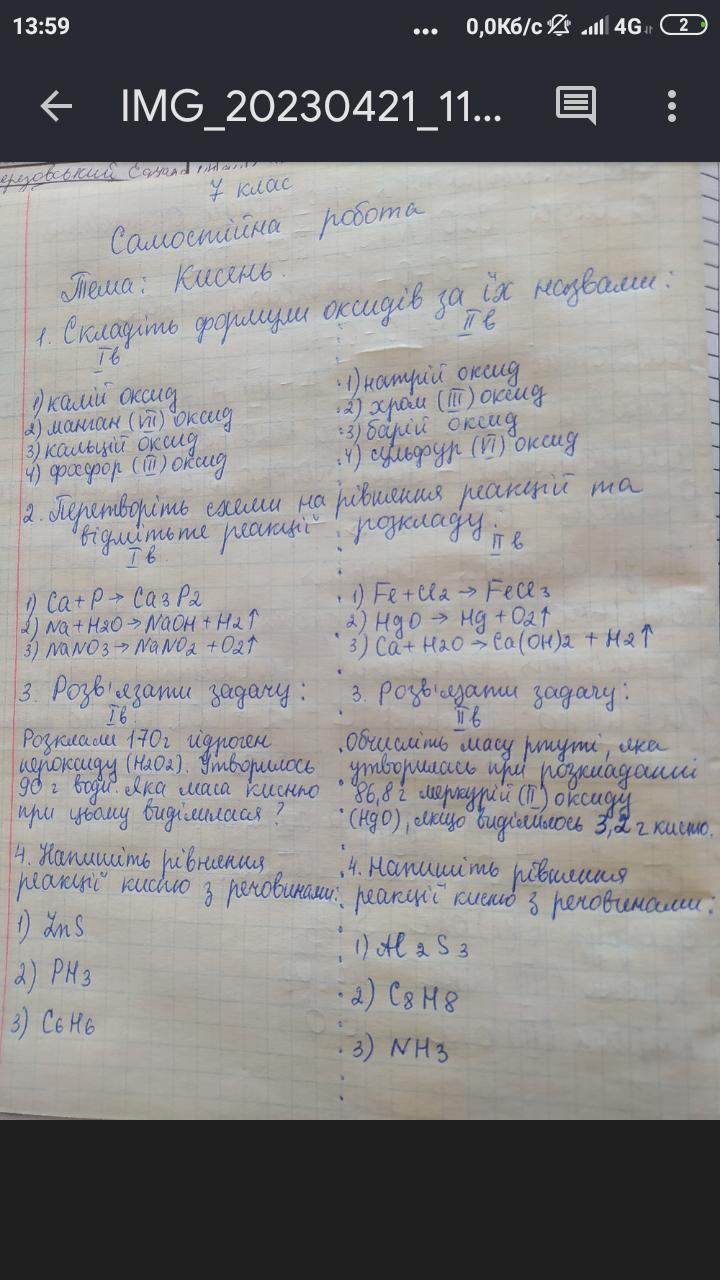 13:59 ... 0,0Кб/с 4G 2
IMG_20230421_11...
7 клас
Самостійна робота
Тема: Кисень.
1. Складіть формули оксидів за їх назвами:
Ів
1) калій оксид
2) манган (VII) оксид
3) кальцій оксид
4) фосфор (III) оксид
ІІв
1) натрій оксид
2) хром (III) оксид
3) барій оксид
4) сульфур (VI) оксид
2. Перетворіть схеми на рівняння реакцій та
відмітьте реакції розкладу.
Ів
1) Ca + P → Ca3P2
2) Na + H2O → NaOH + H2↑
3) NaNO3 → NaNO2 + O2↑
ІІв
1) Fe + Cl2 → FeCl3
2) HgO → Hg + O2↑
3) Ca + H2O → Ca(OH)2 + H2↑
3. Розв'язати задачу:
Ів
Розклали 170г гідроген
пероксиду (H2O2). Утворилось
90 г води. Яка маса кисню
при цьому виділилася?
3. Розв'язати задачу:
ІІв
Обчисліть масу ртуті, яка
утворилась при розкладанні
86,8г меркурій (II) оксиду
(HgO), якщо виділилось 3,2 г кисню.
4. Напишіть рівняння
реакції кисню з речовинами:
1) ZnS
2) PH3
3) C6H6
4. Напишіть рівняння
реакції кисню з речовинами:
1) Al2S3
2) C8H8
3) NH3